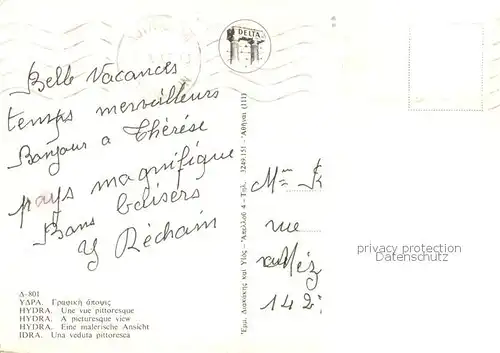 DELTA
Belle Vacances
temps merveilleurs
Bonjour a Thérèse
pays magnifique
Bons baisers
Y Réchain
Δ-801
ΥΔΡΑ. Γραφική άποψις
HYDRA. Une vue pittoresque
HYDRA. A picturesque view
HYDRA. Eine malerische Ansicht
IDRA. Una veduta pittoresca
Έμμ. Διακάκης καί Υἱός - Ἀπελλοῦ 4 - Τηλ. 3249.151 - Ἀθῆναι (111)
Mme
rue
Méz
142
privacy protection
Datenschutz